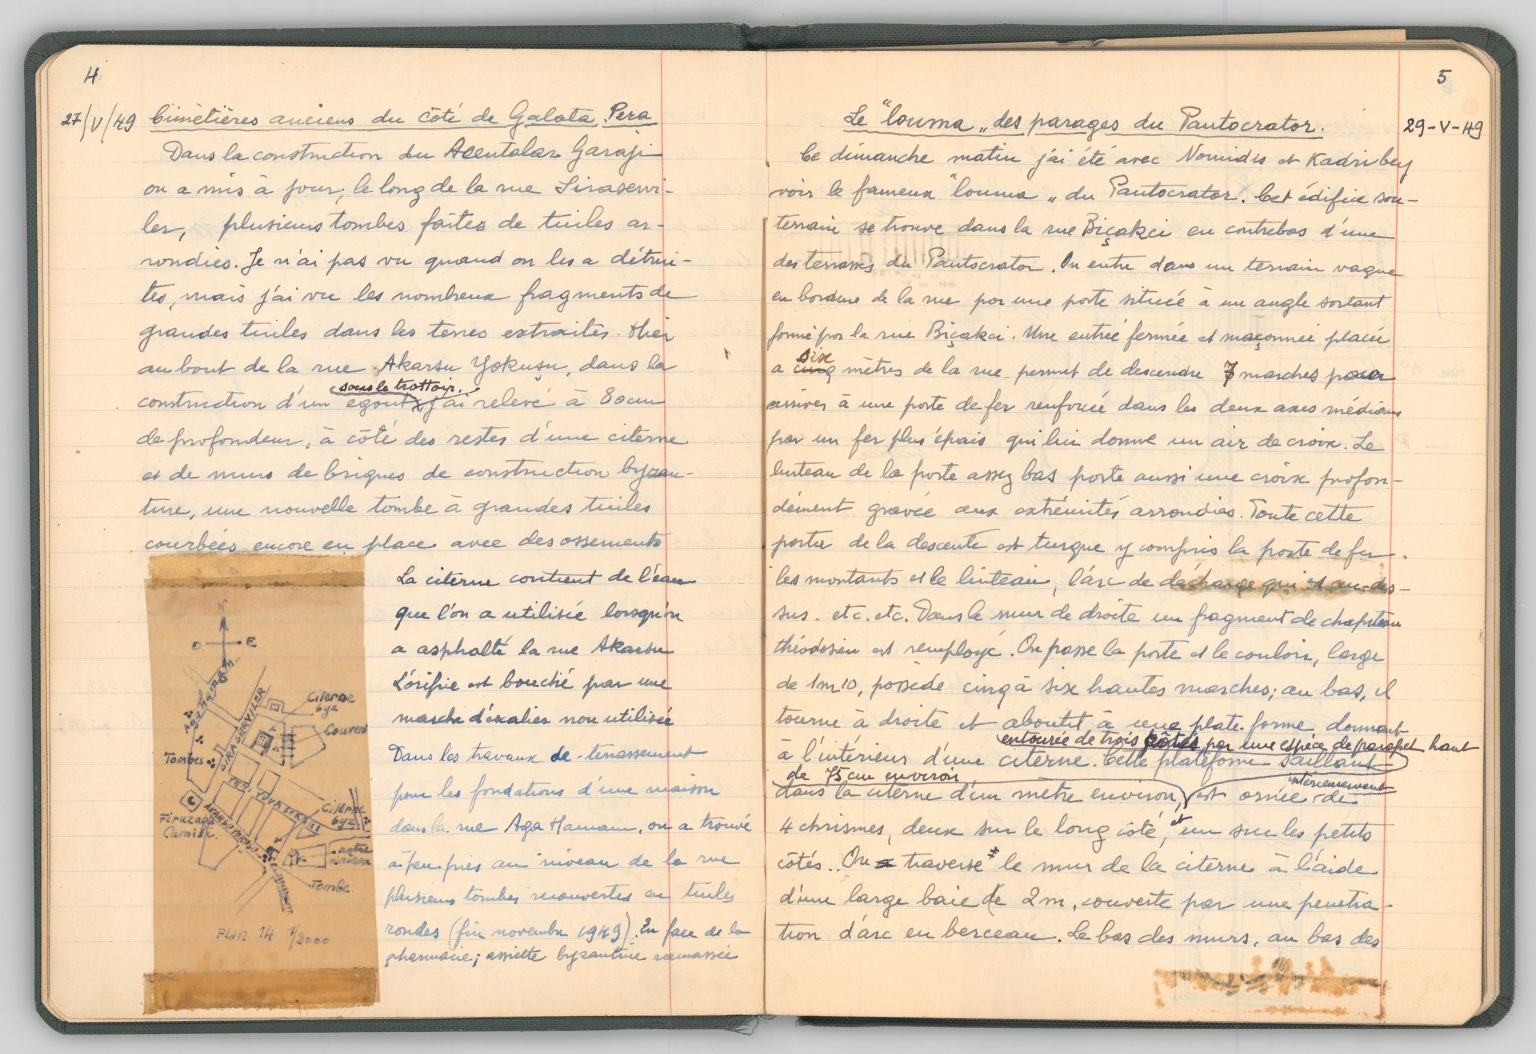 4
27/V/49 Cimetières anciens du côté de Galata, Pera
Dans la construction du Acentalar Garaji
on a mis à jour, le long de la rue Siraservi-
ler, plusieurs tombes faites de tuiles ar-
rondies. Je n'ai pas vu quand on les a détrui-
tes, mais j'ai vu les nombreux fragments de
grandes tuiles dans les terres extraites. Hier
au bout de la rue Akarsu Yokuşu, dans la
sous le trottoir
construction d'un egout j'ai relevé à 80cm
de profondeur, à côté des restes d'une citerne
et de murs de briques de construction byzan-
tine, une nouvelle tombe à grandes tuiles
courbées encore en place avec des ossements
La citerne contient de l'eau
que l'on a utilisée lorsqu'on
a asphalté la rue Akarsu
L'orifice est bouché par une
marche d'escalier non utilisée
Dans les travaux de terrassement
pour les fondations d'une maison
dans la rue Aga Hamam, on a trouvé
à peu près au niveau de la rue
plusieurs tombes recouvertes en tuiles
rondes (fin novembre 1949). En face de la
pharmacie; assiette byzantine ramassée
N
O E
SIRASERVILER
Citerne
byz
Couvent
Tombes
C
Firuzaga
Camisi
YENI YUVA SOKAGI
AKARSU YOKUŞU
Citerne
byz
notre
maison
Tombe
PLAN 14 1/2000
5
Le "louma" des parages du Pantocrator. 29-V-49
Ce dimanche matin j'ai été avec Nomidis et Kadri bey
voir le fameux "louma" du Pantocrator. Cet édifice sou-
terrain se trouve dans la rue Biçakci en contrebas d'une
des terrasses du Pantocrator. On entre dans un terrain vague
en bordure de la rue par une porte située à un angle sortant
formé par la rue Biçakci. Une entrée fermée et maçonnée placée
six
a cinq mètres de la rue permet de descendre 7 marches pour
arriver à une porte de fer renforcée dans les deux axes médians
par un fer plus épais qui lui donne un air de croix. Le
linteau de la porte assez bas porte aussi une croix profon-
dément gravée aux extrémités arrondies. Toute cette
partie de la descente est turque y compris la porte de fer
les montants et le linteau, l'arc de décharge qui est au-des-
sus. etc. etc. Dans le mur de droite un fragment de chapiteau
théodosien est remployé. On passe la porte et le couloir, large
de 1m10, possède cinq à six hautes marches; au bas, il
tourne à droite et aboutit à une plate-forme donnant
entourée de trois côtés par une espèce de parapet haut
à l'intérieur d'une citerne. Cette plateforme saillant
de 75cm environ
intérieurement
dans la citerne d'un mètre environ, est ornée de
4 chrismes, deux sur le long côté, et un sur les petits
côtés. On traverse le mur de la citerne à l'aide
d'une large baie de 2m, couverte par une pénétra-
tion d'arc en berceau. Le bas des murs, au bas des